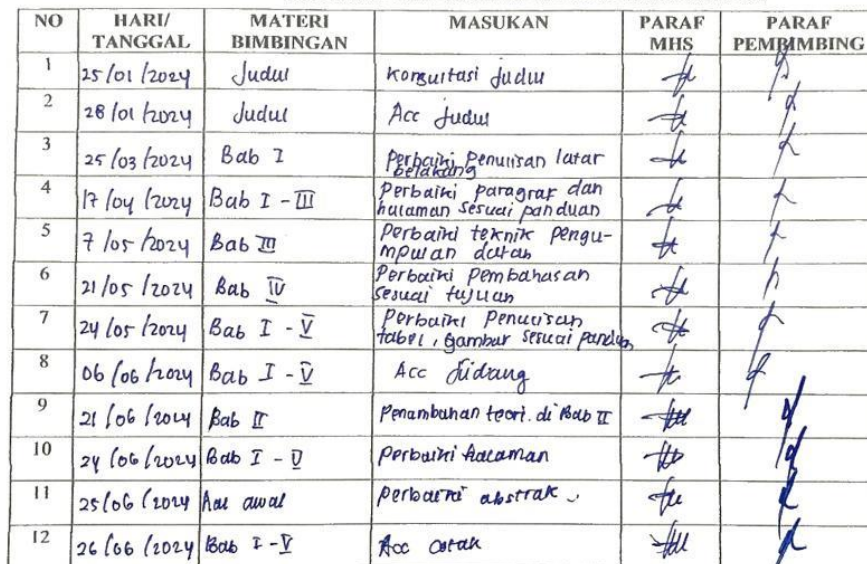 NO HARI/ TANGGAL MATERI BIMBINGAN MASUKAN PARAF MHS PARAF PEMBIMBING
1 25/01/2024 Judul Konsultasi Judul
2 28/01/2024 Judul Acc Judul
3 25/03/2024 Bab I Perbaiki Penulisan latar
belakang
4 17/04/2024 Bab I - III Perbaiki paragraf dan
halaman sesuai panduan
5 7/05/2024 Bab III Perbaiki teknik pengu-
mpulan datan
6 21/05/2024 Bab IV Perbaiki Pembahasan
sesuai tujuan
7 24/05/2024 Bab I - V Perbaiki Penulisan
tabel, Gambar sesuai panduan
8 06/06/2024 Bab I - V Acc Sidang
9 21/06/2024 Bab II Penambahan teori di Bab II
10 24/06/2024 Bab I - V Perbaiki Halaman
11 25/06/2024 Hal awal Perbaiki abstrak
12 26/06/2024 Bab I - V Acc cetak